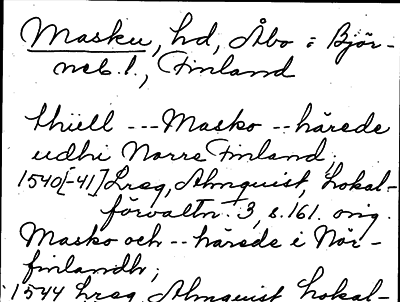 Masku, hd, Åbo o Björ-
neb. l., Finland
thiill --- Masko -- härede
udhi Norre Finland.
1540[-41] Lreg, Almquist, Lokal-
förvaltn. 3, s. 161. orig.
Masko och -- härede i Nör-
finlandh;
1544 Lreg Almquist Lokal-